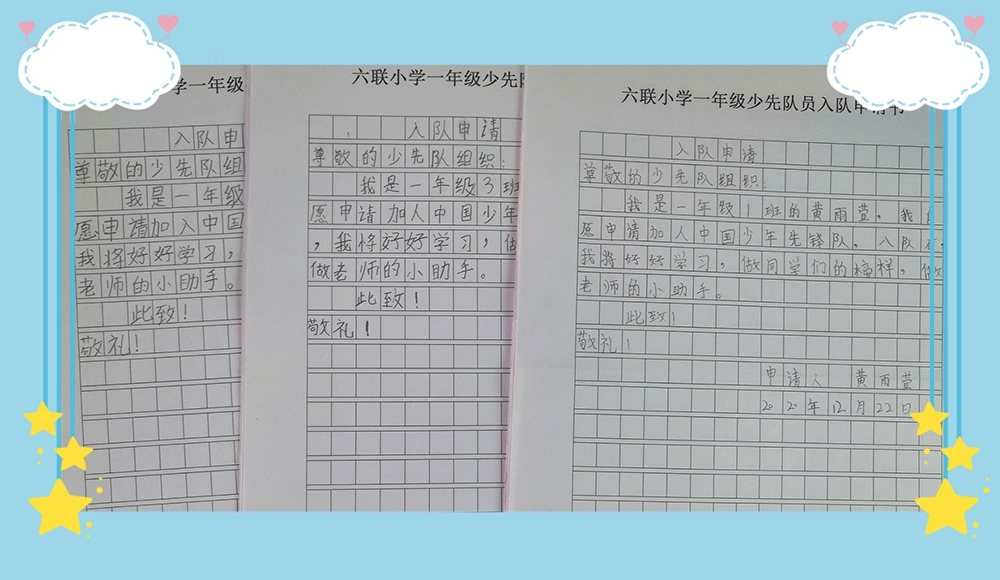 学一年级
入队申
尊敬的少先队组
我是一年级
愿申请加入中国
我将好好学习，
老师的小助手。
此致！
敬礼！
六联小学一年级少先队
入队申请
尊敬的少先队组织：
我是一年级3班
愿申请加人中国少年
，我将好好学习，做
做老师的小助手。
此致！
敬礼！
六联小学一年级少先队员入队申请书
入队申请
尊敬的少先队组织
我是一年级1班的黄雨萱，我自
愿申请加人中国少年先锋队。入队
我将好好学习，做同学们的榜样，做
老师的小助手。
此致！
敬礼！
申请人 黄雨萱
2020年12月22日